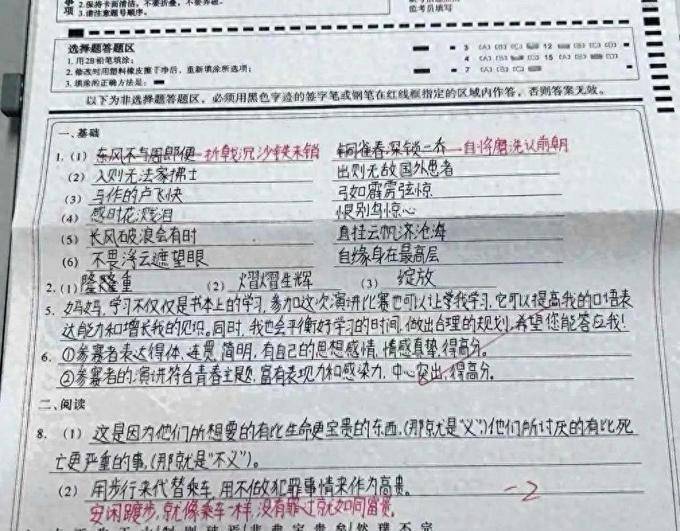 2.保持卡面清洁,不要折叠,不要弄破。
3.请注意题号顺序。
监考员填写
选择题答题区
1. 用2B铅笔填涂;
2. 修改时用塑料橡皮擦干净后,重新填涂所选项;
3. 填涂的正确方法是:
3 (A) (B) (C) 12 (B) (C) (D)
4 (A) (B) (D) 15 (A) (B) (D)
7 (A) (B) (C)
以下为非选择题答题区,必须用黑色字迹的签字笔或钢笔在红线框指定的区域内作答,否则答案无效。
一、基础
1. (1) 东风不与周郎便 折戟沉沙铁未销 铜雀春深锁二乔 自将磨洗认前朝
(2) 入则无法家拂士 出则无敌国外患者
(3) 马作的卢飞快 弓如霹雳弦惊
(4) 感时花溅泪 恨别鸟惊心
(5) 长风破浪会有时 直挂云帆济沧海
(6) 不畏浮云遮望眼 自缘身在最高层
2. (1) 隆重 (2) 熠熠生辉 (3) 绽放
5. 妈妈,学习不仅仅是书本上的学习,参加这次演讲比赛也可以让学我学习,它可以提高我的口语表
达能力和增长我的见识。同时,我也会平衡好学习的时间,做出合理的规划,希望您能答应我!
6. ①参赛者表达得体,连贯,简明,有自己的思想感情,情感真挚,得高分。
②参赛者的演讲符合青春主题,富有表现力和感染力,中心突出,得高分。
二、阅读
8. (1) 这是因为他们所想要的有比生命更宝贵的东西,(那就是“义”)他们所讨厌的有比死
亡更严重的事,(那就是“不义”)。
(2) 用步行来代替乘车,用不做犯罪事情来作为高贵。 -2
安闲踱步,就像乘车一样,没有罪过就如同富贵。